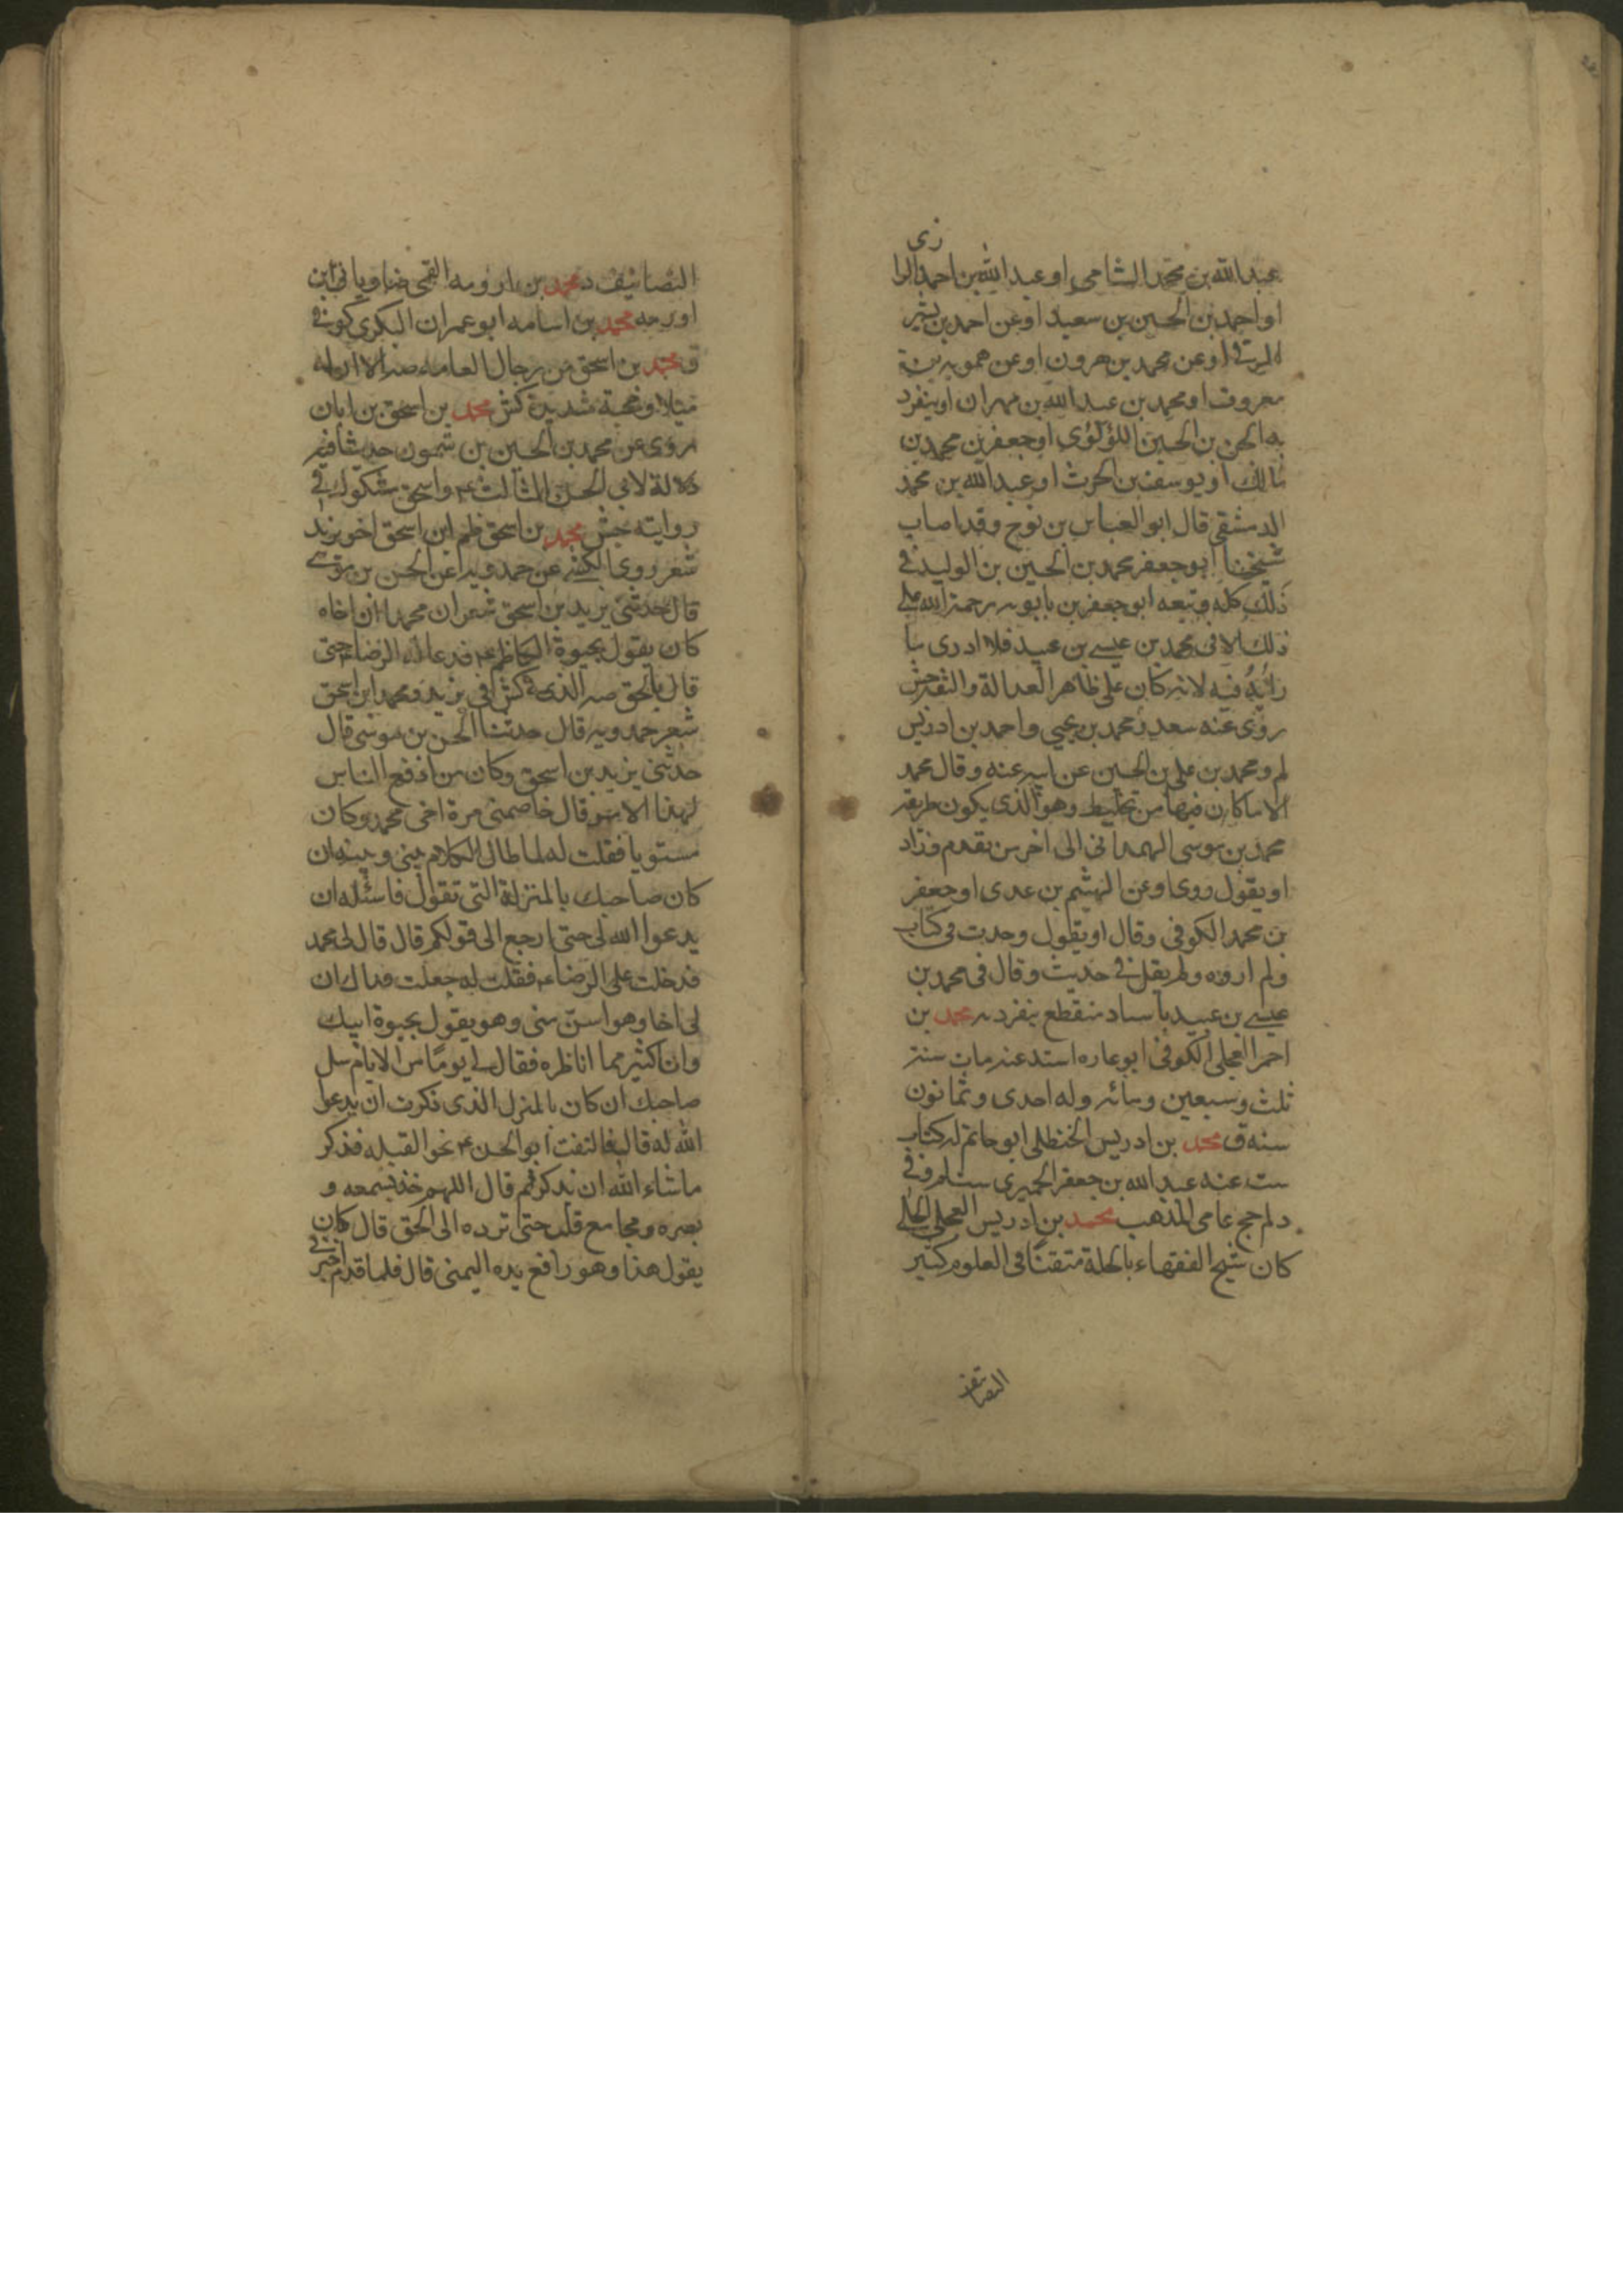 عبدالله بن محمد الشامى او عبدالله بن احمد الرا
زى
او احمد بن الحسين بن سعيد او عن احمد بن بشير
الرقى او عن محمد بن هرون او عن ممويه بن
معروف او محمد بن عبدالله بن مهران او ينفرد
به الحسن بن الحسين اللؤلؤى او جعفر بن محمد بن
مالك او يوسف بن الحرث او عبدالله بن محمد
الدمشقى قال ابو العباس بن نوح وقد اصاب
شيخنا ابو جعفر محمد بن الحسين بن الوليد فى
ذلك كله وتبعه ابو جعفر بن بابويه رحمة الله على
ذلك الا فى محمد بن عيسى بن عبيد فلا ادرى ما
رائه فيه لانه كان على ظاهر العدالة والثقة جش
روى عنه سعد ومحمد بن يحيى واحمد بن ادريس
لم ومحمد بن على بن الحسين عن ابيه عنه وقال محمد
الا ما كان فيها من تخليط وهو الذى يكون طريقه
محمد بن موسى الهمدانى الى اخر من تقدم وزاد
او يقول روى او عن الهيثم بن عدى او جعفر
بن محمد الكوفى وقال او يقول وجدت فى كتاب
ولم اروه ولم يقل فى حديث وقال فى محمد بن
عيسى بن عبيد باسناد منقطع ينفرد به محمد بن
احمر العجلى الكوفى ابو عاره اسند عنه مات سنة
ثلث وسبعين ومائه وله احدى وثمانون
سنه ق محمد بن ادريس الحنظلى ابو حاتم له كتاب
ست عنه عبدالله بن جعفر الحميرى
د لم جج عامى المذهب محمد بن ادريس العجلى الحلى
كان شيخ الفقهاء بالحلة متقنا فى العلوم كثير
التصانيف
التصانيف د محمد بن ارومه القمى ضا وياتى ابن
اورمه محمد بن اسامه ابو عمران البكرى كوفى
ق محمد بن اسحق من رجال العامه صه الا ان له
ميلا ومحبة شديدة كش محمد بن اسحق بن ابان
روى عن محمد بن الحسين بن شمون حديثا فيه
دلالة لابى الحسن الثالث ع واسحق مشكوك فى
روايته جش محمد بن اسحق ظم ابن اسحق اخو يزيد
شعر روى الكشى عن حمدويه عن الحسن بن موسى
قال حدثنى يزيد بن اسحق شعر ان محمدا اخاه
كان يقول بحيوة الكاظم ع فدعا له الرضا ع حتى
قال بالحق صه الذى فى كش فى يزيد ومحمد ابن اسحق
شعر حمدويه قال حدثنا الحسن بن موسى قال
حدثنى يزيد بن اسحق وكان من ادفع الناس
لهذا الامر قال خاصمنى مرة اخى محمد وكان
مستويا فقلت له لما طال الكلام بينى وبينه ان
كان صاحبك بالمنزلة التى تقول فاسئله ان
يدعوا الله لى حتى ارجع الى قولكم قال قال لى محمد
فدخلت على الرضا ع فقلت له جعلت فداك ان
لى اخا وهو اسن منى وهو يقول بحيوة ابيك
وانا كثيرمما اناظره فقال لى يوما من الايام سل
صاحبك ان كان بالمنزل الذى ذكرت ان يدعوا
الله له قال فالتفت ابو الحسن ع نحو القبله فذكر
ماشاء الله ان يذكر ثم قال اللهم خذ بسمعه و
بصره ومجامع قلبه حتى ترده الى الحق قال كان
يقول هذا وهو رافع يده اليمنى قال فلما قدم اخبرنى